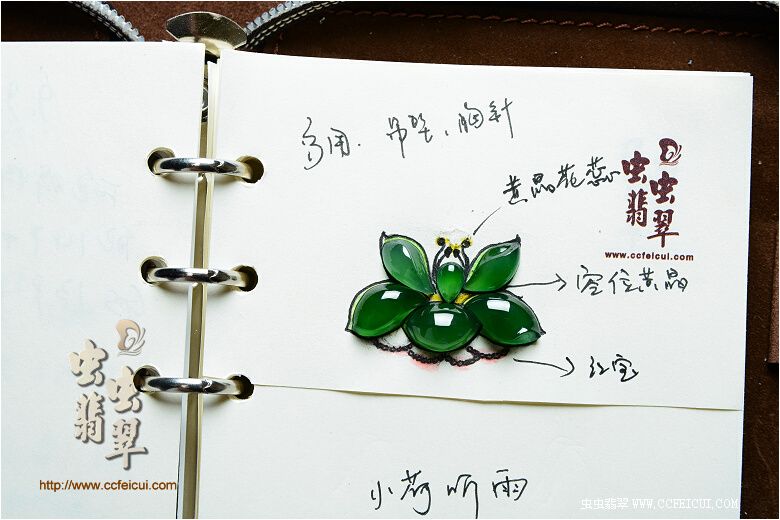 多用、吊坠、胸针
黄晶花蕊
虫虫翡翠
www.ccfeicui.com
空位黄晶
红宝
虫虫翡翠
http://www.ccfeicui.com
小荷听雨
虫虫翡翠 WWW.CCFEICUI.COM